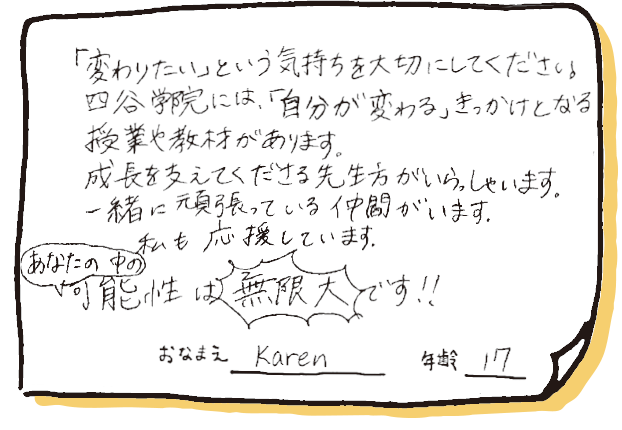 「変わりたい」という気持ちを大切にしてください。
四谷学院には、「自分が変わる」きっかけとなる
授業や教材があります。
成長を支えてくださる先生方がいらっしゃいます。
一緒に頑張っている仲間がいます。
私も応援しています。
あなたの中の
可能性は無限大です!!
おなまえ Karen 年齢 17